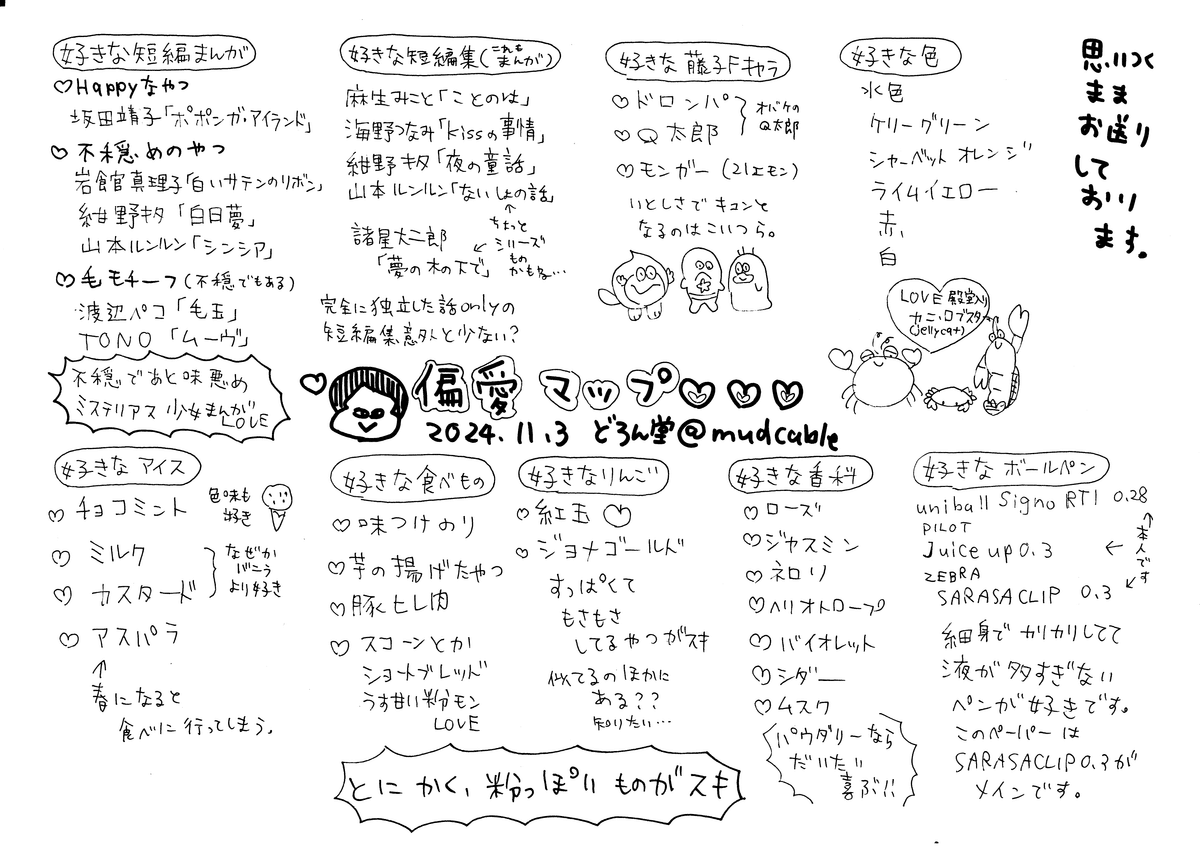 好きな短編まんが
♡Happyなやつ
坂田靖子「ポポンガ・アイランド」
♡不穏めのやつ
岩館真理子「白いサテンのリボン」
紺野キタ「白日夢」
山本ルンルン「シンシア」
♡毛モチーフ(不穏でもある)
渡辺ペコ「毛玉」
TONO「ムーヴ」
不穏であと味悪め
ミステリアス少女まんが
LOVE
好きな短編集(これもまんが)
麻生みこと「ことのは」
海野つなみ「kissの事情」
紺野キタ「夜の童話」
山本ルンルン「ないしょの話」
↑
ちょっと
シリーズ
もの
かもな…
諸星大二郎 ←
「夢の木の下で」
完全に独立した話onlyの
短編集意外と少ない?
好きな藤子Fキャラ
♡ドロンパ
♡Q太郎
オバケの
Q太郎
♡モンガー(21エモン)
いとしさでキュンと
なるのはこいつら。
好きな色
水色
ケリーグリーン
シャーベットオレンジ
ライムイエロー
赤
白
LOVE 殿堂入り
カニ、ロブスター
(jellycat)
思いつく
まま
お送り
して
おり
ます。
♡偏愛マップ♡♡♡
2024.11.3 どろん堂@mudcable
好きなアイス
♡チョコミント
色味も
好き
♡ミルク
♡カスタード
なぜか
バニラ
より好き
♡アスパラ
↑
春になると
食べに行ってしまう。
好きな食べもの
♡味つけのり
♡芋の揚げたやつ
♡豚ヒレ肉
♡スコーンとか
ショートブレッド
うす甘い粉モン
LOVE
好きなりんご
♡紅玉
♡ジョナゴールド
すっぱくて
もさもさ
してるやつがスキ
似てるのほかに
ある??
知りたい…
好きな香料
♡ローズ
♡ジャスミン
♡ネロリ
♡ヘリオトロープ
♡バイオレット
♡シダー
♡ムスク
パウダリーなら
だいたい
喜ぶ!!
好きなボールペン
uniball Signo RT1 0.28
PILOT
Juice up 0.3 ←
ZEBRA
SARASA CLIP 0.3
↑
本人です
↙
細身でカリカリしてて
液が多すぎない
ペンが好きです。
このペーパーは
SARASA CLIP 0.3が
メインです。
とにかく、粉っぽいものがスキ